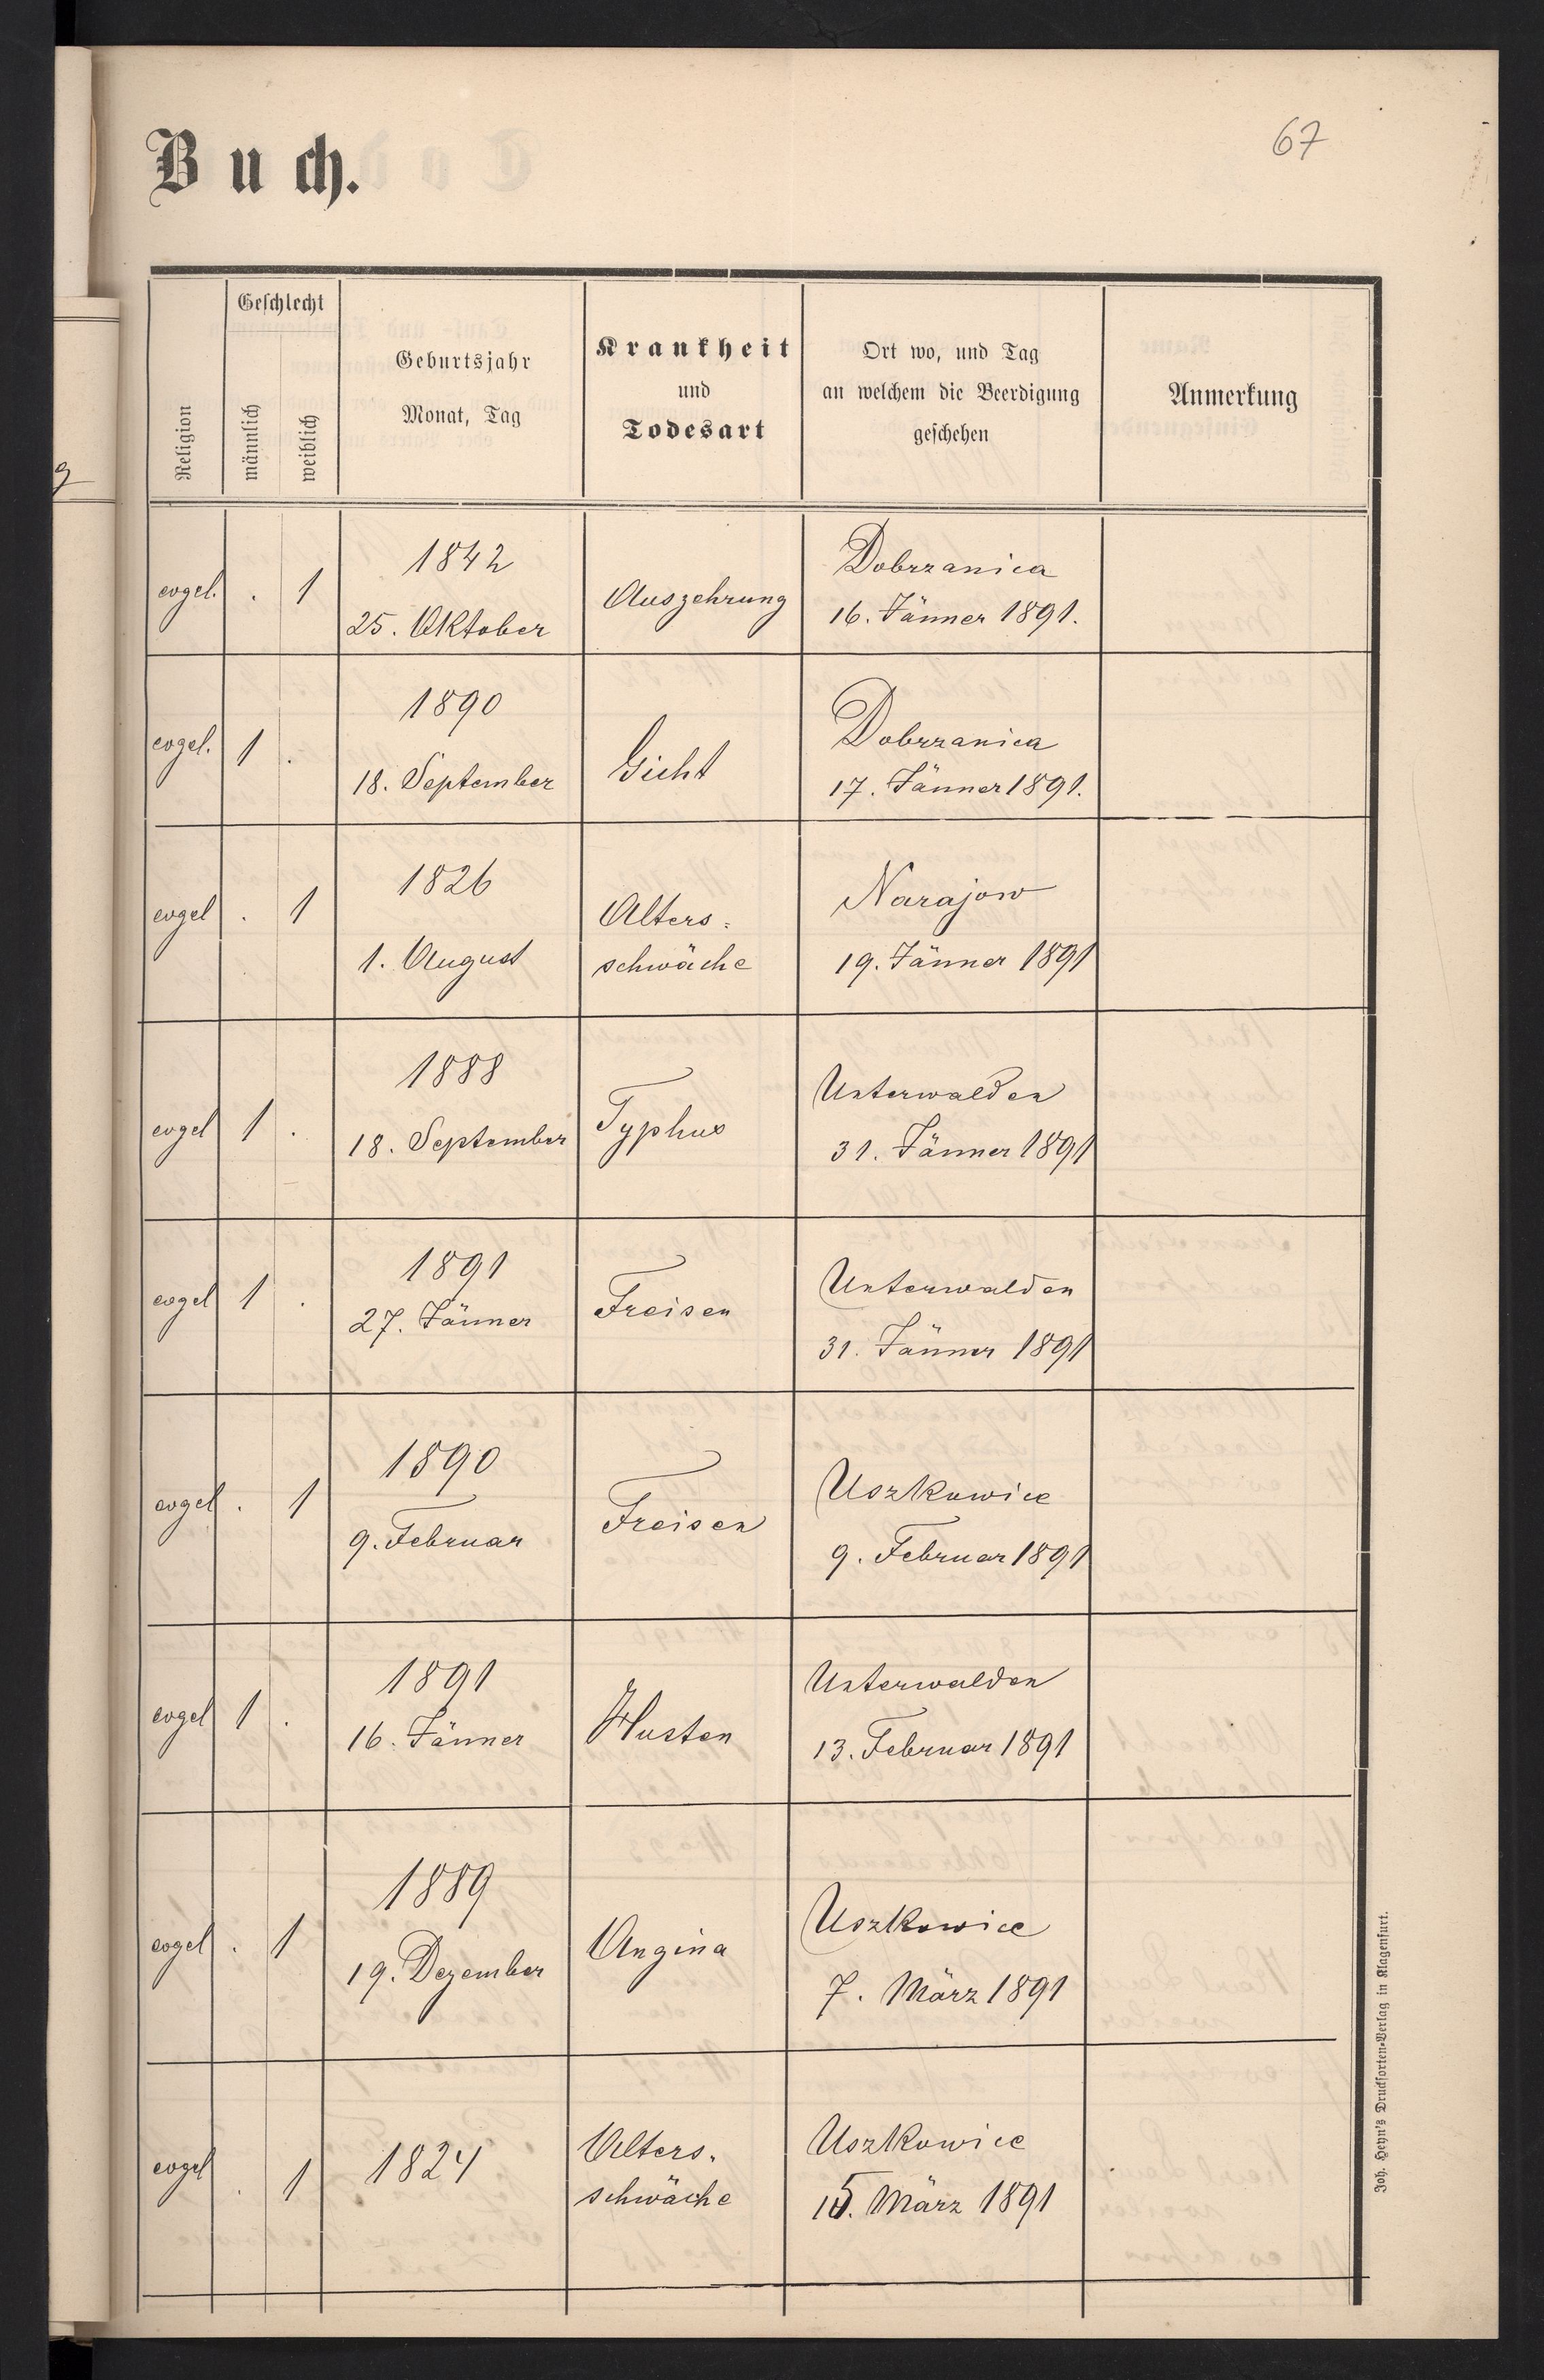 67
Buch.
Religion
Geschlecht
männlich
weiblich
Geburtsjahr
Monat, Tag
Krankheit
und
Todesart
Ort wo, und Tag
an welchem die Beerdigung
geschehen
Anmerkung
evgel. . 1
1842
25. Oktober
Auszehrung
Dobrzanica
16. Jänner 1891.
evgel. 1 .
1890
18. September
Gicht
Dobrzanica
17. Jänner 1891.
evgel . 1
1826
1. August
Alters=
schwäche
Narajow
19. Jänner 1891
evgel 1 .
1888
18. September
Typhus
Unterwalden
31. Jänner 1891
evgel 1 .
1891
27. Jänner
Freisen
Unterwalden
31. Jänner 1891
evgel . 1
1890
9. Februar
Freisen
Uszkowice
9. Februar 1891
evgel 1 .
1891
16. Jänner
Husten
Unterwalden
13. Februar 1891
evgel . 1
1889
19. Dezember
Angina
Uszkowice
7. März 1891
evgel . 1
1824
Alters=
schwäche
Uszkowice
15. März 1891
Joh. Heyn's Drucksorten-Verlag in Klagenfurt.